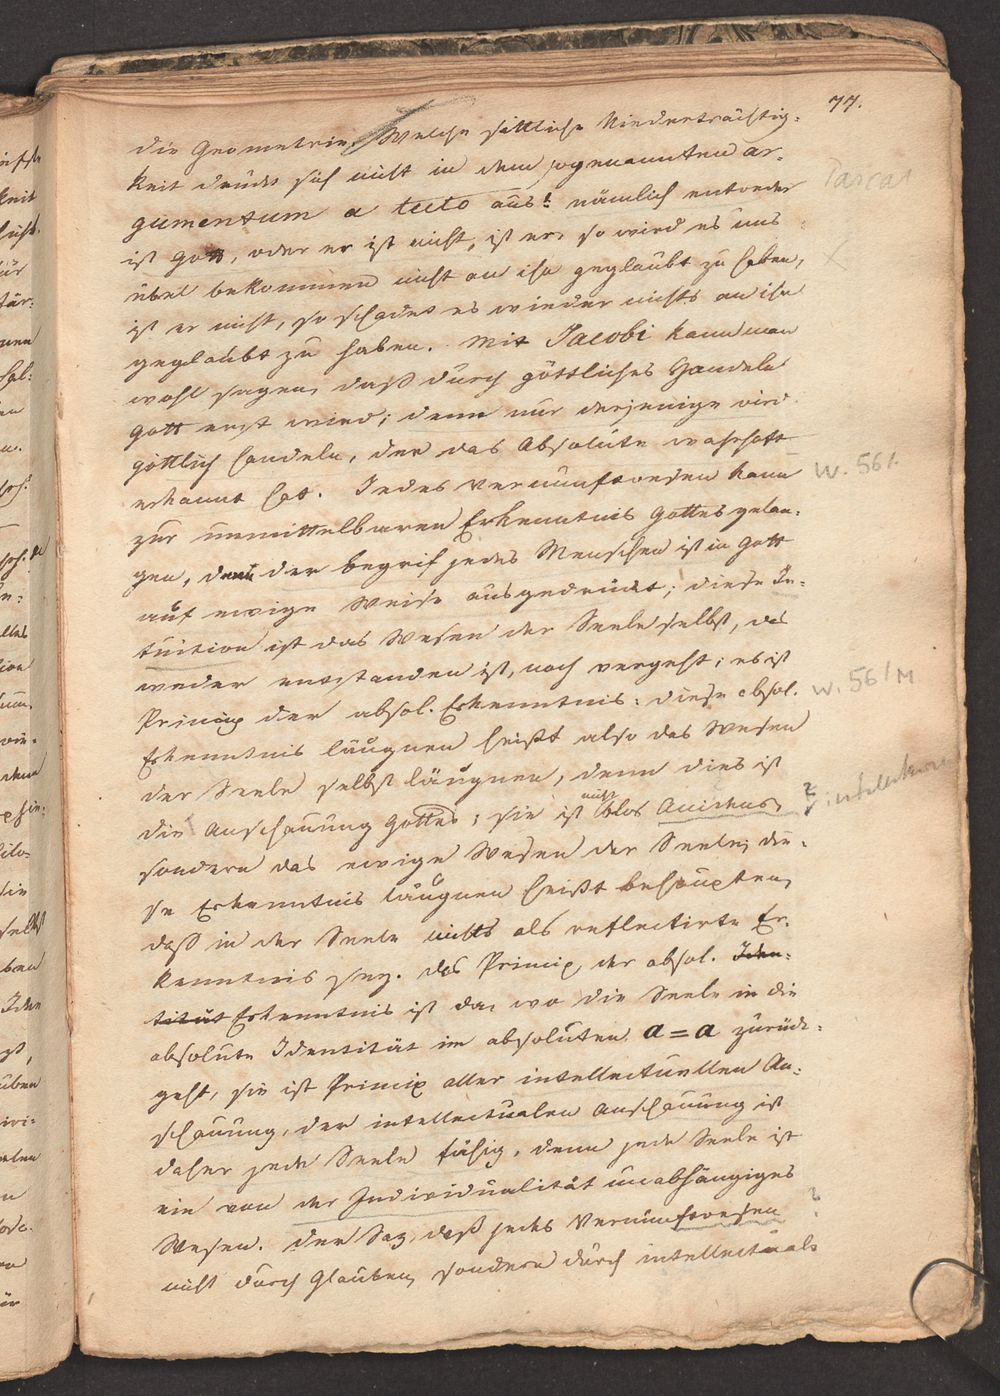 77.
die Geometrie. Welche sittliche Niederträchtig-
keit drückt sich nicht in dem sogenannten ar-
Pascal
gumentum a tuto aus: nämlich entweder
ist Gott, oder er ist nicht, ist er, so wird es uns
übel bekommen nicht an ihn geglaubt zu haben,
ist er nicht, so schadet es wieder nichts an ihn
geglaubt zu haben. Mit Jacobi kann man
wohl sagen, daß durch göttliches Handeln
Gott erst wird; denn nur derjenige wird
göttlich handeln, der das Absolute wahrhaft
erkannt hat. Jedes Vernunftwesen kann
W. 561.
zur unmittelbaren Erkenntnis Gottes gelan-
gen, denn der begrif jedes Menschen ist in Gott
auf ewige Weise ausgedrückt; diese In-
tuition ist das Wesen der Seele selbst, das
weder entstanden ist, noch vergeht; es ist
Princip der absol. Erkenntnis: diese absol.
W. 561 M
Erkenntnis läugnen heißt also das Wesen
der Seele selbst läugnen, denn dies ist
die Anschauung Gottes; sie ist nicht blos
sondern das ewige Wesen der Seele; die-
se Erkenntnis läugnen heißt behaupten,
daß in der Seele nichts als reflectirte Er-
kenntnis sey. das Princip der absol. Iden-
tität Erkenntnis ist da, wo die Seele in die
absolute Identität im absoluten a = a zurück-
geht, sie ist Princip aller intellectuellen An-
schauung, der intellectualen Anschauung ist
daher jede Seele fähig, denn jede Seele ist
ein von der Individualität unabhängiges
Wesen. Der Saz, daß jedes Vernunftwesen
nicht durch Glauben, sondern durch intellectuale